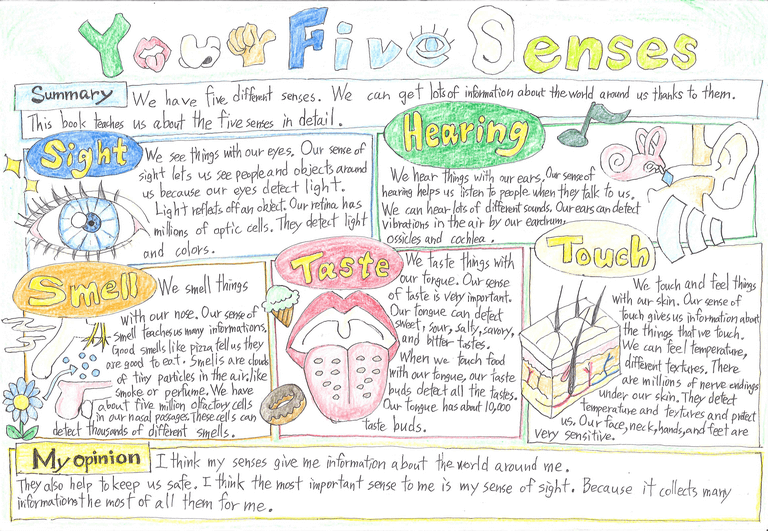 Your Five Senses
Summary We have five different senses. We can get lots of information about the world around us thanks to them.
This book teaches us about the five senses in detail.
Sight
We see things with our eyes. Our sense of
sight lets us see people and objects around
us because our eyes detect light.
Light reflects off an object. Our retina has
millions of optic cells. They detect light
and colors.
Hearing
We hear things with our ears. Our sense of
hearing helps us listen to people when they talk to us.
We can hear lots of different sounds. Our ears can detect
vibrations in the air by our eardrum,
ossicles and cochlea.
Smell
We smell things
with our nose. Our sense of
smell teaches us many informations.
Good smells like pizza tell us they
are good to eat. Smells are clouds
of tiny particles in the air, like
smoke or perfume. We have
about five million olfactory cells
in our nasal passages. These cells can
detect thousands of different smells.
Taste
We taste things with
our tongue. Our sense
of taste is very important.
Our tongue can detect
sweet, sour, salty, savory,
and bitter tastes.
When we touch food
with our tongue, our taste
buds detect all the tastes.
Our tongue has about 10,000
taste buds.
Touch
We touch and feel things
with our skin. Our sense of
touch gives us information about
the things that we touch.
We can feel temperature,
different textures. There
are millions of nerve endings
under our skin. They detect
temperature and textures and protect
us. Our face, neck, hands, and feet are
very sensitive.
My opinion I think my senses give me information about the world around me.
They also help to keep us safe. I think the most important sense to me is my sense of sight. Because it collects many
informations the most of all them for me.